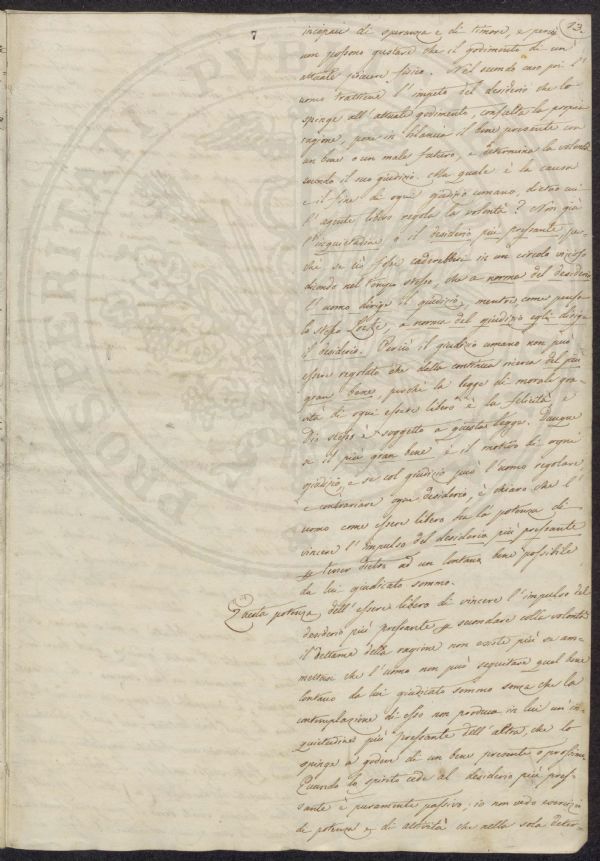 7
13.
incapaci di speranza e di timore, e perciò
non possono gustare che il godimento di un'
attuale piacere fisico. Nel secondo caso poi l'
uomo trattiene l'impeto del desiderio che lo
spinge all'attuale godimento, consulta la propria
ragione, pone in bilancia il bene presente con
un bene o un male futuro, e determina la volontà
secondo il suo giudizio. Ma quale è la causa
e il fine di ogni giudizio umano, dietro cui
l'agente libero regola la volontà? Non già
l'inquietudine o il desiderio più pressante, per-
chè se ciò fosse caderebbesi in un circolo vizioso
dicendo nel tempo stesso, che a norma del desiderio
l'uomo dirige il giudizio, mentre come pensa
lo stesso Locke, a norma del giudizio egli dirige
il desiderio. Perciò il giudizio umano non può
essere regolato che dalla continua ricerca del più
gran bene, perchè la legge di morale gra-
vità di ogni essere libero è la felicità, e
Dio stesso è soggetto a questa legge. Dunque
se il più gran bene è il motivo di ogni
giudizio, e se col giudizio può l'uomo regolare
e contrariare ogni desiderio, è chiaro che l'
uomo come essere libero ha la potenza di
vincere l'impulso del desiderio più pressante
e tener dietro ad un lontano bene possibile
da lui giudicato sommo.
Questa potenza dell'essere libero di vincere l'impulso del
desiderio più pressante, e secondare colla volontà
il dettame della ragione non esiste più se am-
mettasi che l'uomo non può seguitare qual bene
lontano da lui giudicato sommo senza che la
contemplazione di esso non produca in lui un'in-
quietudine più pressante dell'altra, che lo
spinge a godere di un bene presente o prossimo.
Quando lo spirito cede al desiderio più pres-
sante è puramente passivo; io non vedo esercizio
di potenza e di attività che nella sola deter-